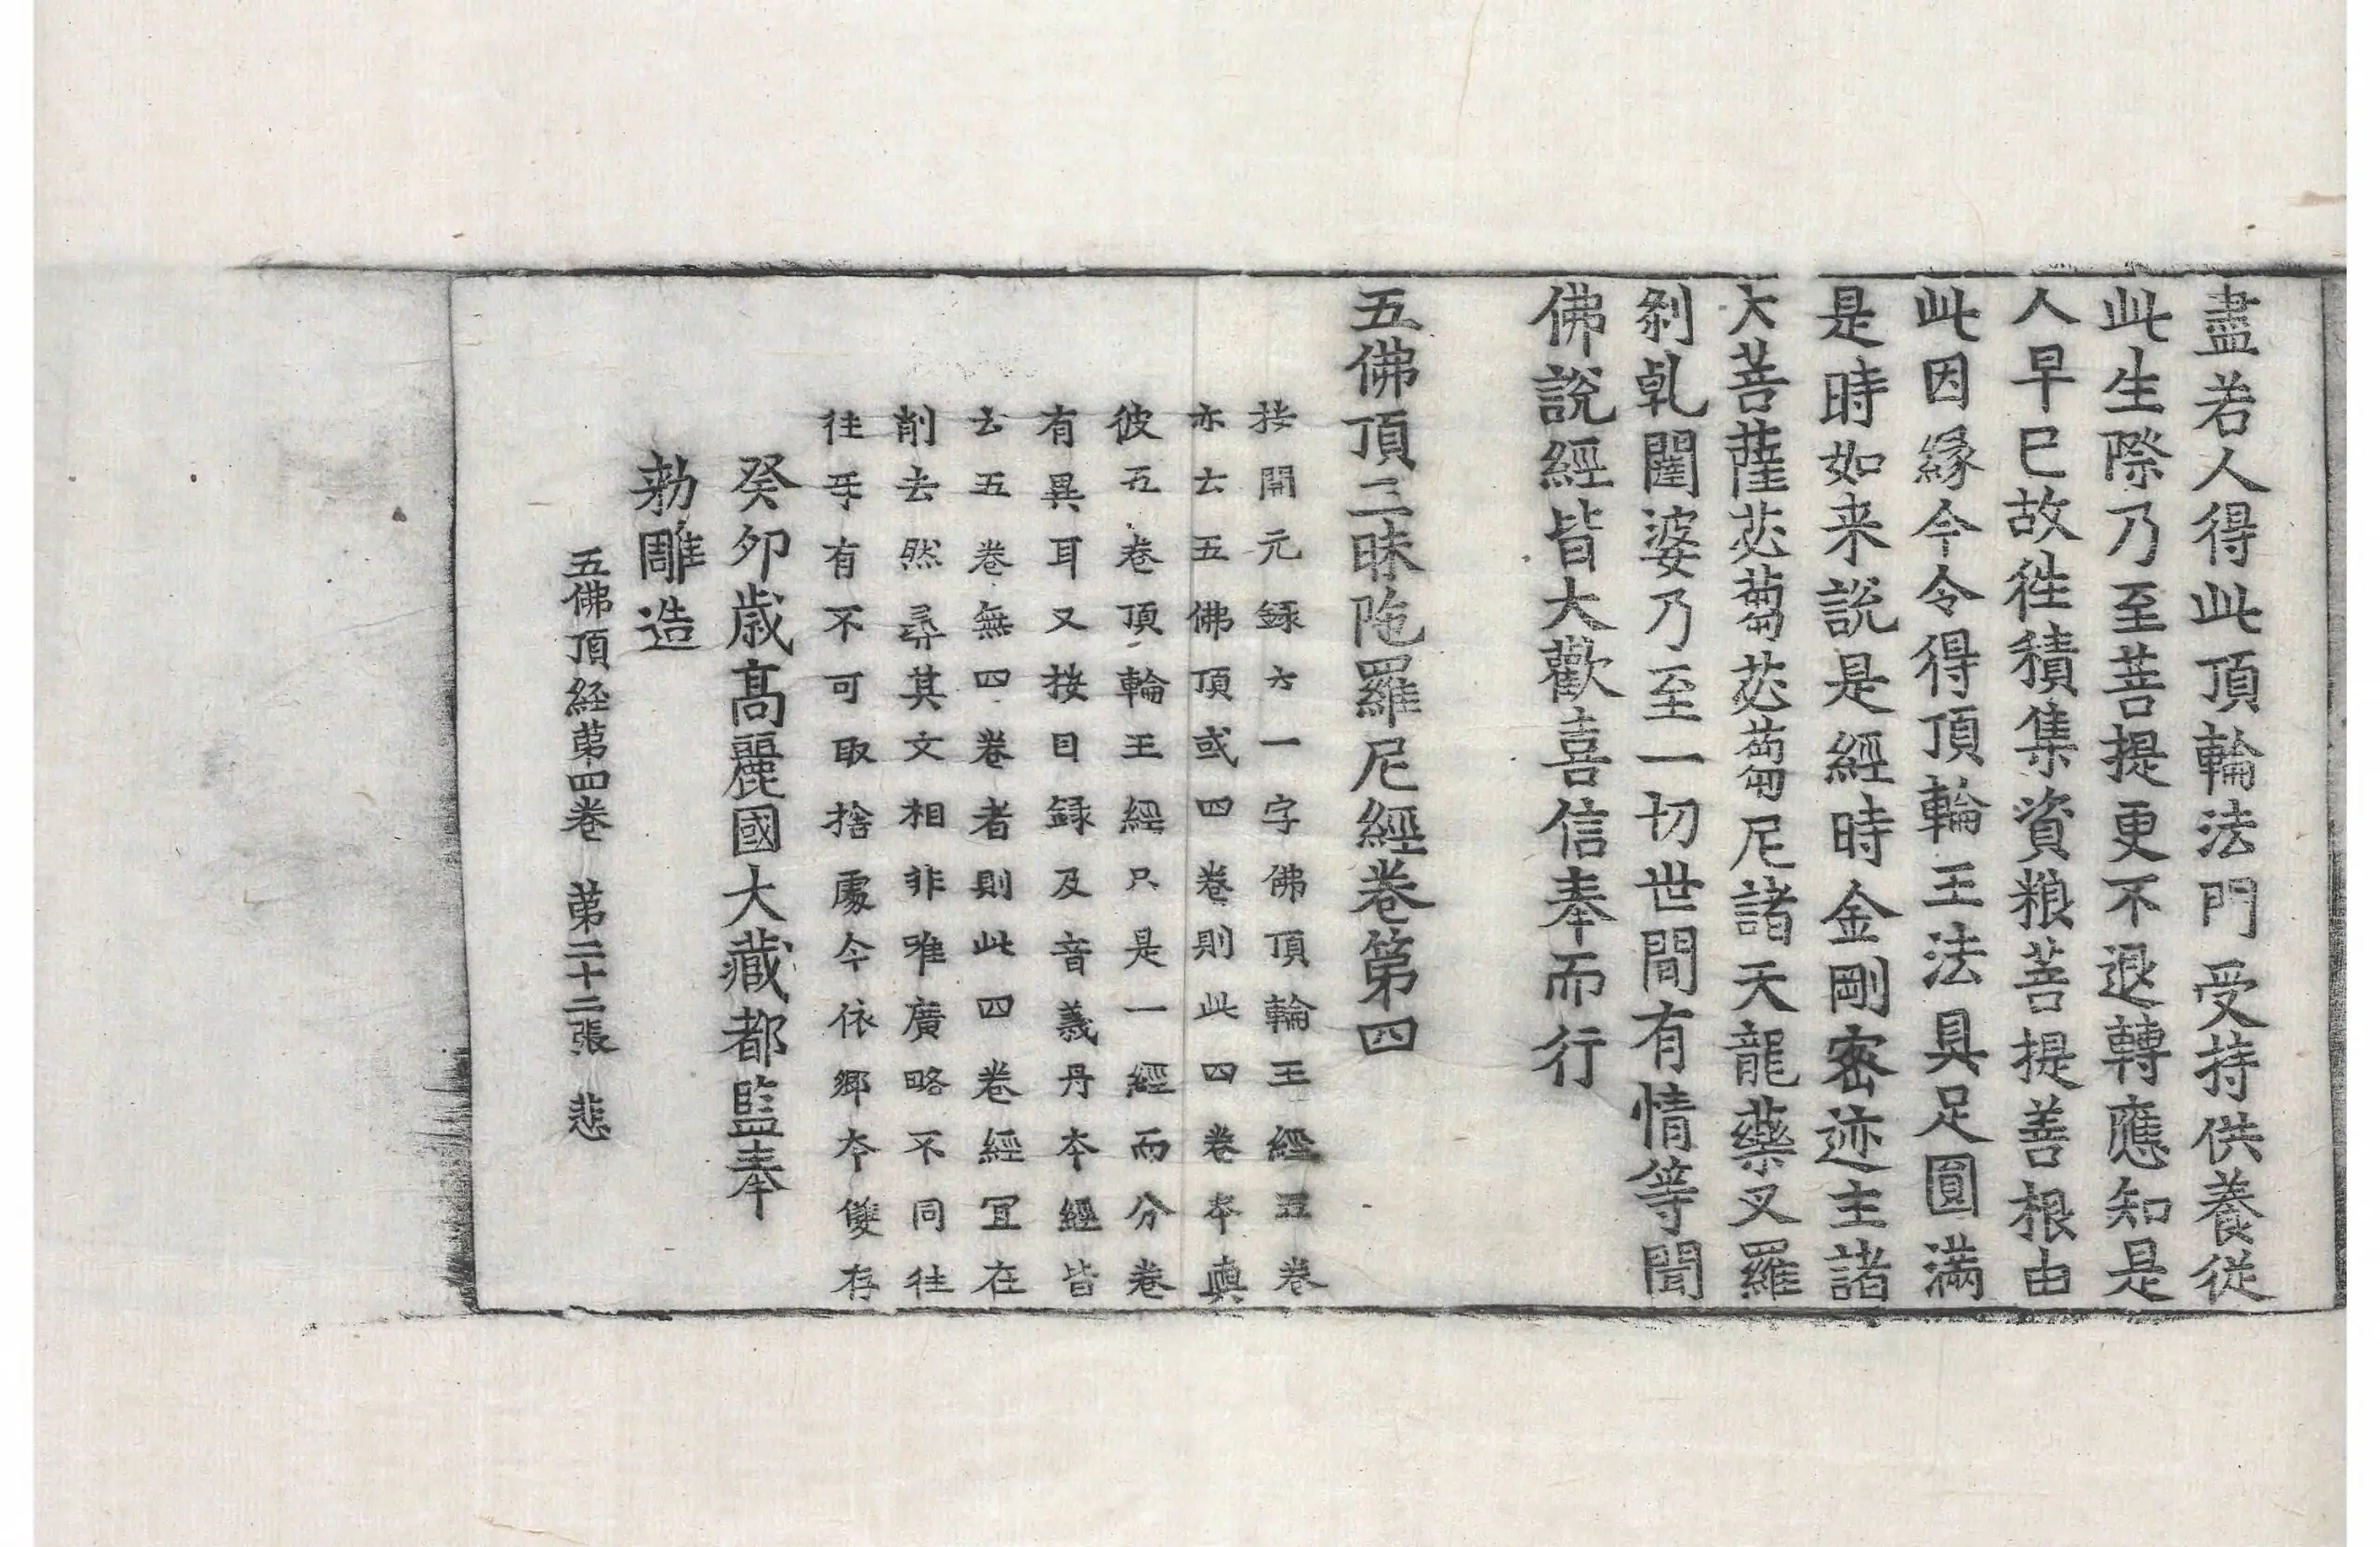 盡若人得此頂輪法門受持供養從
此生際乃至菩提更不退轉應知是
人早已故徃積集資粮菩提善根由
此因縁今令得頂輪王法具足圓滿
是時如来說是經時金剛密迹主諸
大菩薩苾蒭苾蒭尼諸天龍藥叉羅
刹乹闥婆乃至一切世間有情等聞
佛說經皆大歡喜信奉而行
五佛頂三昧陁羅尼經卷第四
按開元録六一字佛頂輪王經五卷
亦云五佛頂或四卷則此四卷夲與
彼五卷頂輪王經只是一經而分卷
有異耳又按目録及音義丹夲經皆
云五卷無四卷者則此四卷經冝在
削去然尋其文相非唯廣略不同徃
徃手有不可取捨處今依鄉夲雙存
癸卯歳髙麗國大藏都監奉
勑雕造
五佛頂経苐四卷 苐二十二張 悲